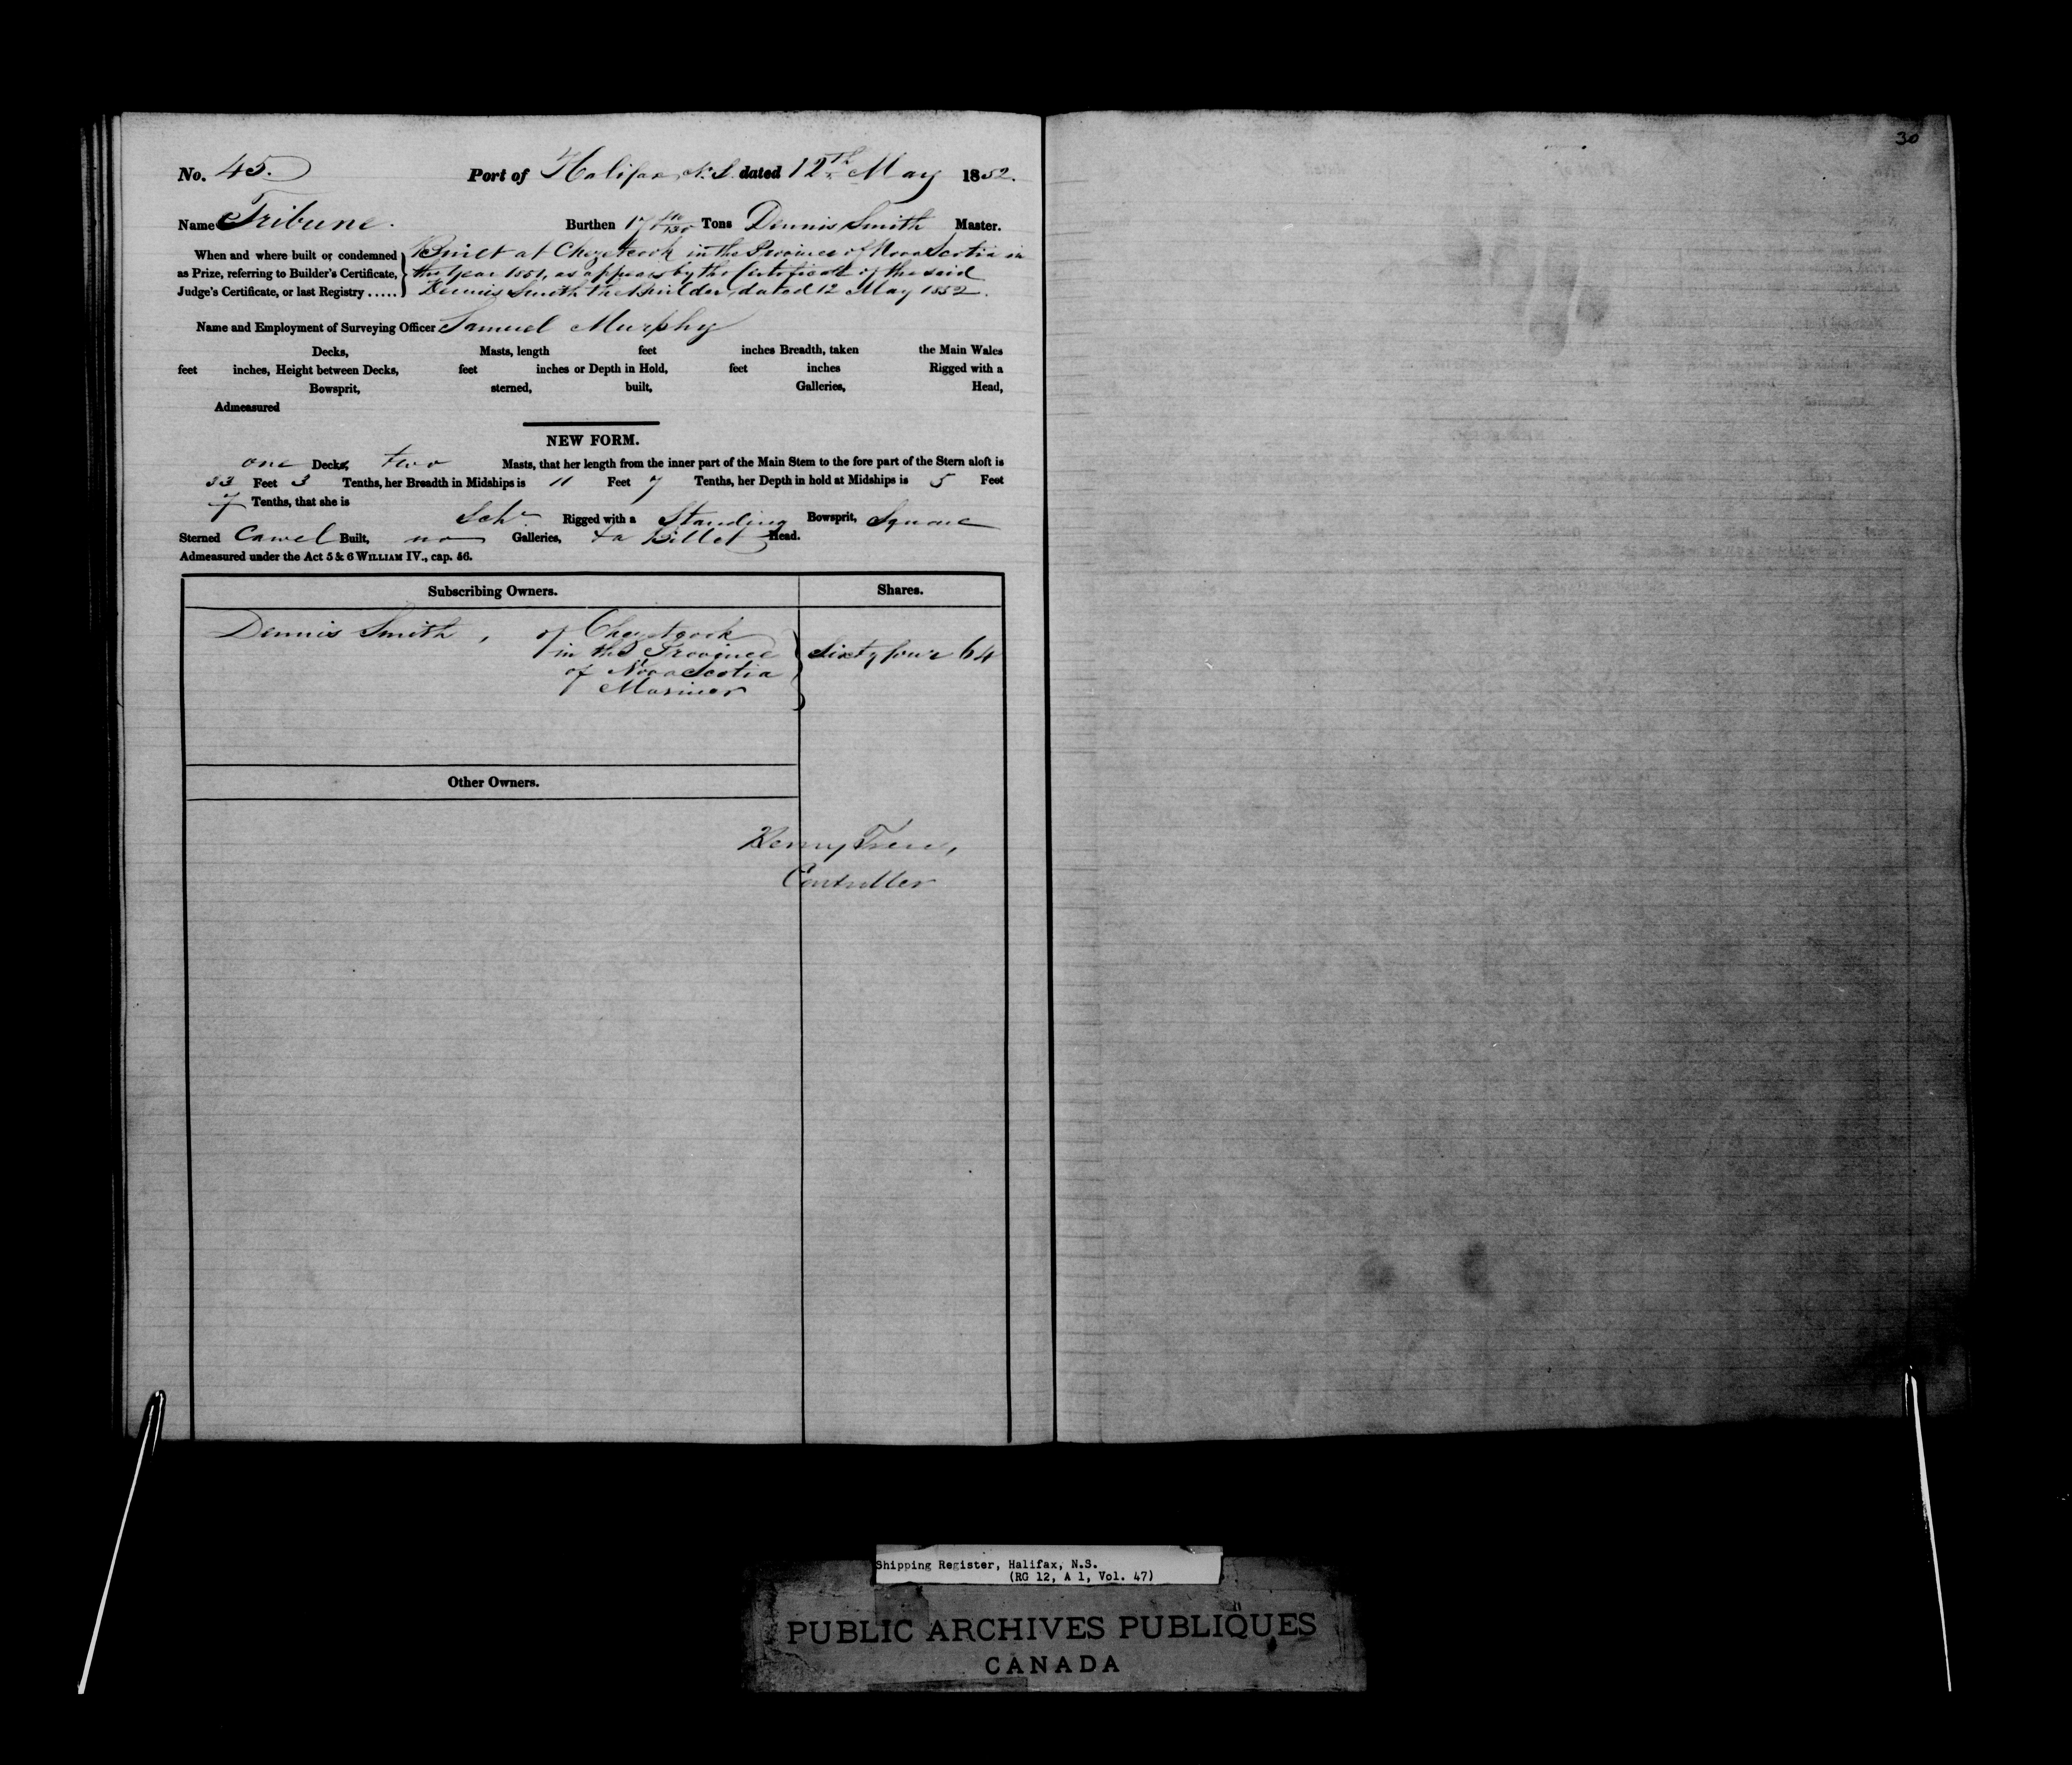 30
No. 45. Port of Halifax, N.S. dated 12th May 1852.
Name Tribune. Burthen 17 Tons Dennis Smith Master.
When and where built or condemned Built at Chezetcook in the Province of Nova Scotia in
as Prize, referring to Builder's Certificate, the Year 1851, as appears by the Certificate of the said
Judge's Certificate, or last Registry ..... Dennis Smith the Builder, dated 12 May 1852.
Name and Employment of Surveying Officer Samuel Murphy
Decks, Masts, length feet inches Breadth, taken the Main Wales
feet inches, Height between Decks, feet inches or Depth in Hold, feet inches Rigged with a
Bowsprit, sterned, built, Galleries, Head,
Admeasured
NEW FORM.
one Decks, two Masts, that her length from the inner part of the Main Stem to the fore part of the Stern aloft is
33 Feet 3 Tenths, her Breadth in Midships is 11 Feet 7 Tenths, her Depth in hold at Midships is 5 Feet
7 Tenths, that she is
Schr. Rigged with a Standing Bowsprit, Square
Sterned Carvel Built, no Galleries, & a Billet Head.
Admeasured under the Act 5 & 6 WILLIAM IV., cap. 56.
Subscribing Owners. Shares.
Dennis Smith, of Chezetcook
in the Province Sixty four 64
of Nova Scotia
Mariner
Other Owners.
Henry Trew,
Controller
Shipping Register, Halifax, N.S.
(RG 12, A 1, Vol. 47)
PUBLIC ARCHIVES PUBLIQUES
CANADA